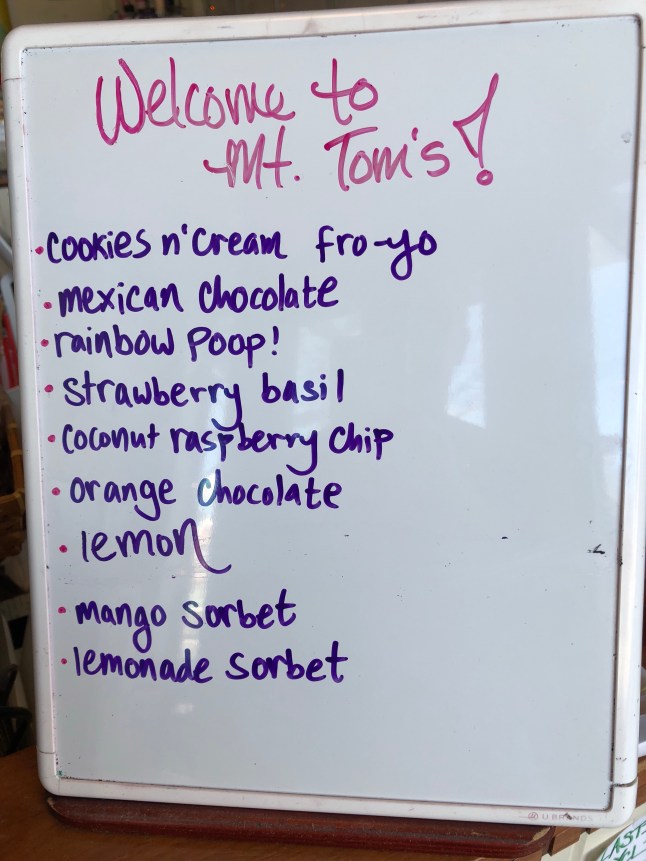 Welcome to
Mt. Tom's!
• cookies n' cream fro-yo
• mexican chocolate
• rainbow poop!
• strawberry basil
• coconut raspberry chip
• orange chocolate
• lemon
• mango sorbet
• lemonade sorbet
U BRANDS
LAST